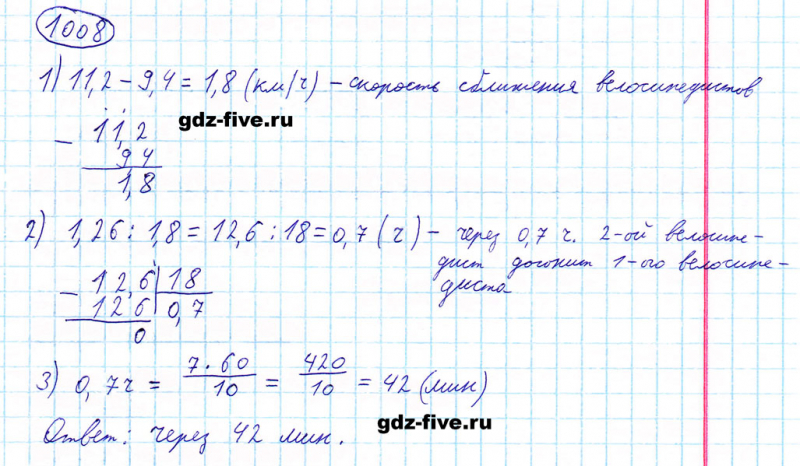 1008
1) 11,2 – 9,4 = 1,8 (км/ч) – скорость сближения велосипедистов
gdz-five.ru
– 11,2
9 4
1,8
2) 1,26 : 1,8 = 12,6 : 18 = 0,7 (ч) – через 0,7 ч. 2-ой велосипе-
дист догонит 1-ого велосипе-
диста
– 12,6 | 18
12 6 | 0,7
0
3) 0,7ч = 7·60/10 = 420/10 = 42 (мин)
gdz-five.ru
Ответ: через 42 мин.